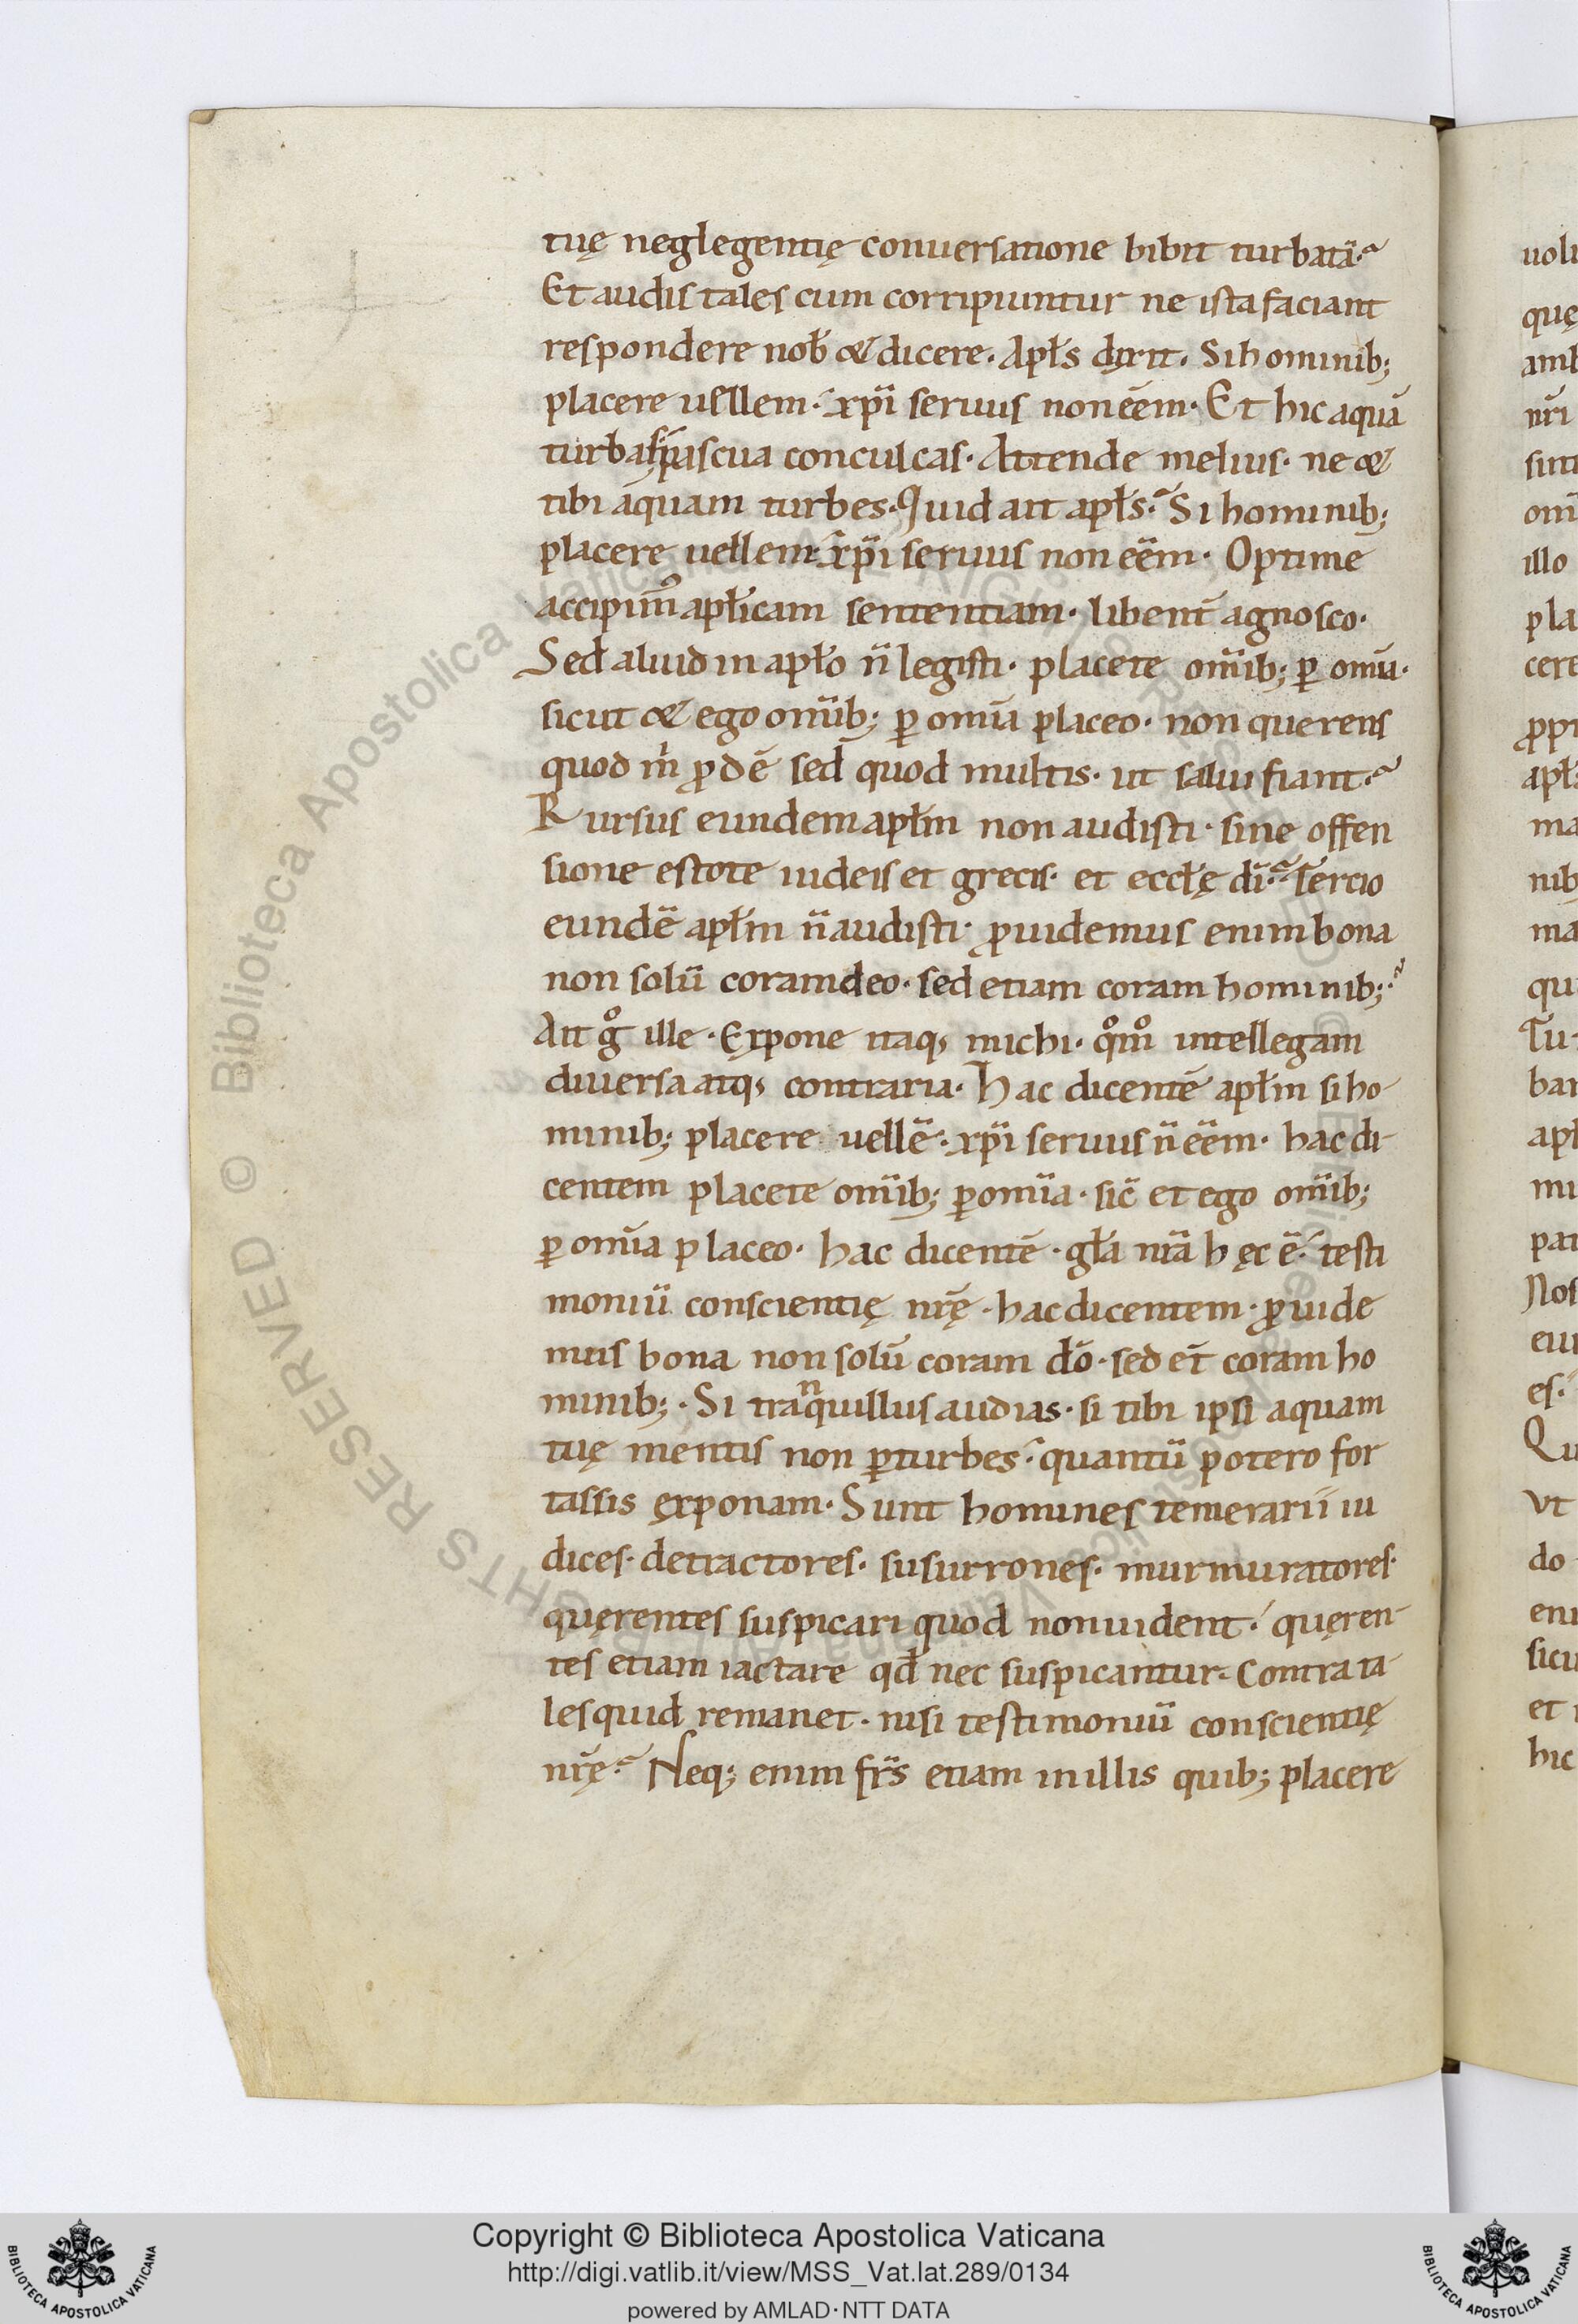 tuę neglegentię conuersatione bibit turbatā.
Et audis tales cum corripiuntur ne ista faciant
respondere nob̄ & dicere. Apl̄s dixit. Si hominib;
placere uellem. xp̄i seruus non eēm. Et hic aquā
turbas, pascua conculcas. Attende melius. ne &
tibi aquam turbes. Quid ait apl̄s. Si hominib;
placere uellem. xp̄i seruus non eēm. Optime
accipim᷒ apl̄icam sententiam. libent̄ agnosco.
Sed aliud in apl̄o n̄ legisti. placete om̄ib; ꝑ omīa.
sicut & ego om̄ib; ꝑ omīa placeo. non querens
quod m̄ ꝓdē sed quod multis. ut salui fiant.
Rursus eundem apl̄m non audisti. sine offen
sione estote iudeis et grecis. et eccl̄ę dī. Tercio
eundē apl̄m n̄ audisti. ꝓuidemus enim bona
non solū coram deo. sed etiam coram hominib;.
Ait gͦ ille. Expone itaq; michi. qͦmͦ intellegam
diuersa atq; contraria. Hac dicentē apl̄m si ho-
minib; placere uellē. xp̄i seruus n̄ eēm. hac di-
centem placete om̄ib; ꝑ omīa. sic̄ et ego om̄ib;
ꝑ omīa placeo. hac dicentē. gl̄a nr̄a hęc ē. testi
moniū conscientię nr̄ę. hac dicentem. ꝓuide
mus bona non solū coram dō. sed et̄ coram ho
minib;. Si tranquillus audias. si tibi ipsi aquam
tuę mentis non ꝑturbes. quantū potero for
tassis exponam. Sunt homines temerarii iu
dices. detractores. susurrones. murmuratores.
quęrentes suspicari quod non uident. quęren-
tes etiam iactare qd̄ nec suspicantur. Contra ta-
les quid remanet. nisi testimoniū conscientię
nr̄ę. Neq; enim fr̄s etiam in illis quib; placere
uolu
quę
amb
nr̄i
sint
om̄
illo
pla
cere
ꝓpr
apl̄
ma
nib
ma
qu
Tu
bar
apl
mu
par
Nos
eiu
es.
Qu
Vt
do
eni
sicu
et
hic
Biblioteca Apostolica Vaticana ALL RIGHTS RESERVED ©
Copyright © Biblioteca Apostolica Vaticana
http://digi.vatlib.it/view/MSS_Vat.lat.289/0134
powered by AMLAD·NTT DATA
BIBLIOTECA APOSTOLICA VATICANA
BIBLIOTECA APOSTOLICA VATICANA